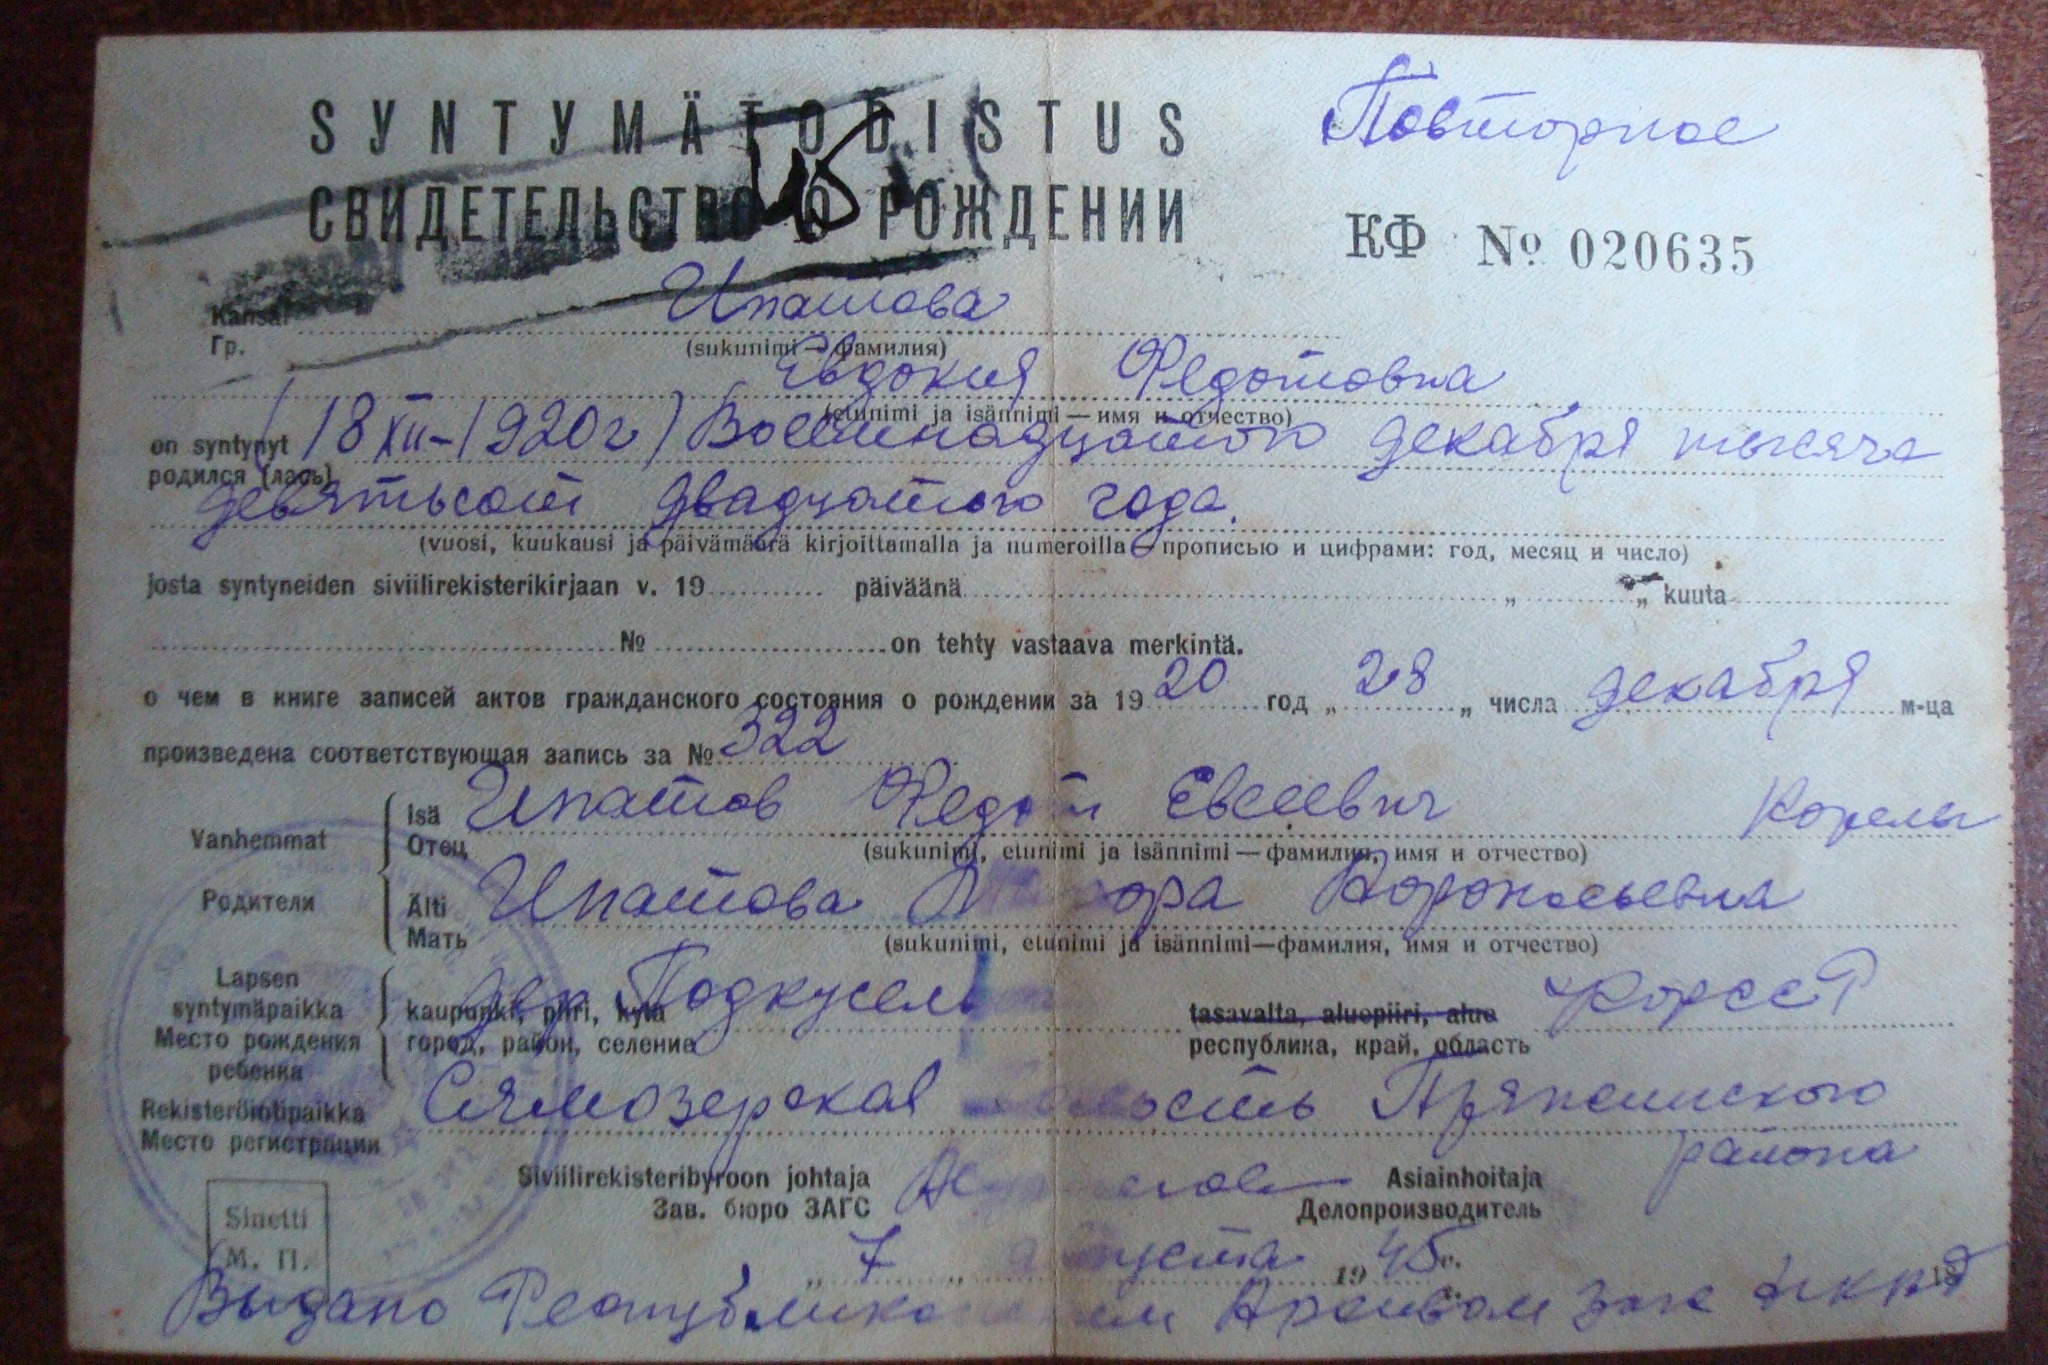 SYNTYMÄTODISTUS
Повторное
СВИДЕТЕЛЬСТВО О РОЖДЕНИИ
КФ № 020635
Kansal Ипатова
Гр.
(sukunimi — фамилия)
Евдокия Федотовна
(etunimi ja isännimi — имя и отчество)
on syntynyt (18 XII-1920г) Восемнадцатого декабря тысяча
родился (лась)
девятьсот двадцатого года.
(vuosi, kuukausi ja päivämäärä kirjoittamalla ja numeroilla — прописью и цифрами: год, месяц и число)
josta syntyneiden siviilirekisterikirjaan v. 19 päivään䄄 „ kuuta
№ on tehty vastaava merkintä.
о чем в книге записей актов гражданского состояния о рождении за 1920 год „28„ числа декабря м-ца
произведена соответствующая запись за № 322
Vanhemmat
Родители
Isä
Отец
Ипатов Федот Евсеевич Корелы
(sukunimi, etunimi ja isännimi — фамилия, имя и отчество)
Älti
Мать
Ипатова
(sukunimi, etunimi ja isännimi—фамилия, имя и отчество)
Lapsen
syntymäpaikka
Место рождения
ребенка
дер.
kaupunki, piiri, kylä
город, район, селение
tasavalta, aluepiiri, alue
республика, край, область
Rekisteröintipaikka
Место регистрации
Сямозерская Пряжинского
района
Siviilirekisteribyroon johtaja
Зав. бюро ЗАГС
Asiainhoitaja
Делопроизводитель
Sinetti
М. П.
„7„ августа 1945г.
Выдано Республиканским Архивом загс